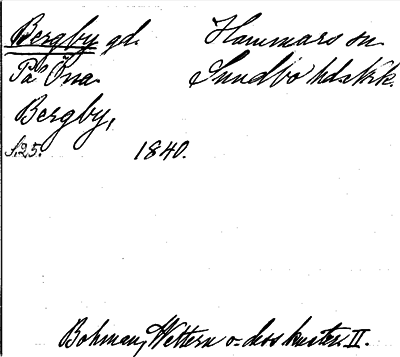 Bergby gd. Hammars sn
På Öna Sundbo hd o. krk.
Bergby,
s. 25. 1840.
Bohman, Wettern o. dess kuster. II.